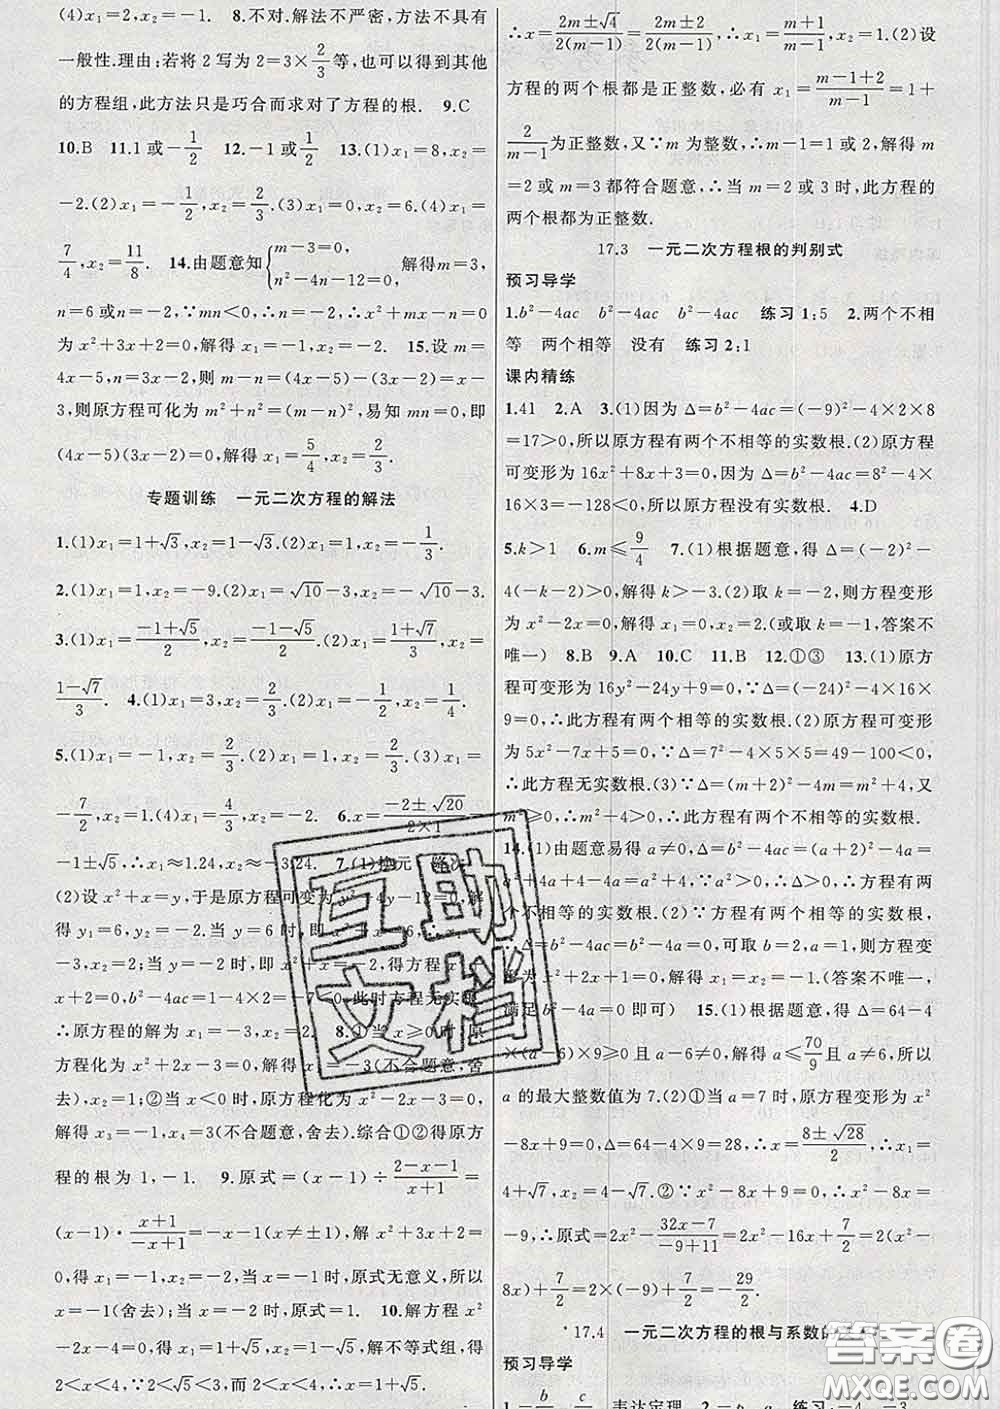 (4)x₁=2,x₂=-1. 8.不对.解法不严密,方法不具有
一般性.理由;若将2写为2=3×2/3等,也可以得到其他
的方程组,此方法只是巧合而求对了方程的根. 9.C
10.B 11.1或-1/2 12.-1或1/2 13.(1)x₁=8,x₂=
-2.(2)x₁=-1/2,x₂=2/3.(3)x₁=0,x₂=6.(4)x₁=
7/4,x₂=11/8. 14.由题意知{m-3=0, n²-4n-12=0, 解得m=3,
n=6或n=-2. ∵mn<0,∴n=-2,∴x²+mx-n=0
为x²+3x+2=0,解得x₁=-1,x₂=-2. 15.设m=
4x-5,n=3x-2,则m-n=(4x-5)-(3x-2)=x-
3,则原方程可化为m²+n²=(m-n)²,易知mn=0,即
(4x-5)(3x-2)=0,解得x₁=5/4,x₂=2/3.
专题训练 一元二次方程的解法
1.(1)x₁=1+√3,x₂=1-√3.(2)x₁=1,x₂=-1/3.
2.(1)x₁=1,x₂=-9.(2)x₁=√10-3,x₂=-√10-3.
3.(1)x₁=(-1+√5)/2,x₂=(-1-√5)/2.(2)x₁=(1+√7)/3,x₂=
(1-√7)/3. 4.(1)x₁=3,x₂=2/3.(2)x₁=1,x₂=4.
5.(1)x₁=1,x₂=2/3.(2)x₁=1,x₂=2/3.(3)x₁=
-7/2,x₂=1.(4)x₁=4/3,x₂=-2. 6.x=(-2±√20)/(2×1)=
-1±√5,∴x₁≈1.24,x₂≈-3.24. 7.(1)换元
(2)设x²+x=y,于是原方程可变为y²-4y-12=0,解
得y₁=6,y₂=-2.当y=6时,即x²+x=6,∴x₁=
-3,x₂=2;当y=-2时,即x²+x=-2,得方程x²+
x+2=0,∵b²-4ac=1-4×2=-7<0,此时方程无实根
∴原方程的解为x₁=-3,x₂=2. 8.①当x≥0时,原
方程化为x²+2x-3=0,解得x₁=-3(不合题意,舍
去),x₂=1;②当x<0时,原方程化为x²-2x-3=0,
解得x₃=-1,x₄=3(不合题意,舍去).综合①②得原方
程的根为1,-1. 9.原式=(x-1)÷(2-x-1)/(x+1)=
(x-1)·(x+1)/(-x+1)=-x-1(x≠±1),解x²+3x+2=
0,得x₁=-1,x₂=-2.当x=-1时,原式无意义,所以
x=-1(舍去);当x=-2时,原式=1. 10.解方程x²
-2x-4=0,得x₁=1+√5,x₂=1-√5,解不等式组,得
2<x<4,∵2<√5<3,而2<x<4,∴x=1+√5.
∴x=(2m±√4)/(2(m-1))=(2m±2)/(2(m-1)),∴x₁=(m+1)/(m-1),x₂=1.(2)设
方程的两个根都是正整数,必有x₁=(m-1+2)/(m-1)=1+
2/(m-1)为正整数,又∵m为整数,∴m-1=1或2,解得m
=2或m=3都符合题意,∴当m=2或3时,此方程的
两个根都为正整数.
17.3 一元二次方程根的判别式
预习导学
1.b²-4ac b²-4ac b²-4ac 练习1:5 2.两个不相
等 两个相等 没有 练习2:1
课内精练
1.41 2.A 3.(1)因为Δ=b²-4ac=(-9)²-4×2×8
=17>0,所以原方程有两个不相等的实数根.(2)原方程
可变形为16x²+8x+3=0,因为Δ=b²-4ac=8²-4×
16×3=-128<0,所以原方程没有实数根. 4.D
5.k>1 6.m≤9/4 7.(1)根据题意,得Δ=(-2)²-
4(-k-2)>0,解得k>-3.(2)取k=-2,则方程变形
为x²-2x=0,解得x₁=0,x₂=2.(或取k=-1,答案不
唯一) 8.B 9.A 10.C 11.B 12.①③ 13.(1)原方
程可变形为16y²-24y+9=0,∵Δ=(-24)²-4×16×
9=0,∴此方程有两个相等的实数根.(2)原方程可变形
为5x²-7x+5=0,∵Δ=7²-4×5×5=49-100<0,
∴此方程无实数根.(3)∵Δ=(m+2)²-4m=m²+4,又
m²≥0,∴m²+4>0,∴此方程有两个不相等的实数根.
14.(1)由题意易得a≠0,Δ=b²-4ac=(a+2)²-4a=
a²+4a+4-4a=a²+4,∵a²>0,∴Δ>0,∴方程有两
个不相等的实数根.(2)∵方程有两个相等的实数根,
∴Δ=b²-4ac=b²-4a=0,可取b=2,a=1,则方程变
形为x²+2x+1=0,解得x₁=x₂=-1.(答案不唯一,
满足b²-4a=0即可) 15.(1)根据题意,得Δ=64-4
×(a-6)×9≥0且a-6≠0,解得a≤70/9且a≠6,所以
a的最大整数值为7.(2)①当a=7时,原方程变形为x²
-8x+9=0,Δ=64-4×9=28,∴x=(8±√28)/2,∴x₁=
4+√7,x₂=4-√7.②∵x²-8x+9=0,∴x²-8x=
-9,∴原式=2x²-(32x-7)/(-9+11)=2x²-16x+7/2=2(x²-
8x)+7/2=2×(-9)+7/2=-29/2.
*17.4 一元二次方程的根与系数的
预习导学
1.-b/a c/a 表达定理 2.-b a 练习:-4 -3
互助文档
答案圈
MXQE.COM